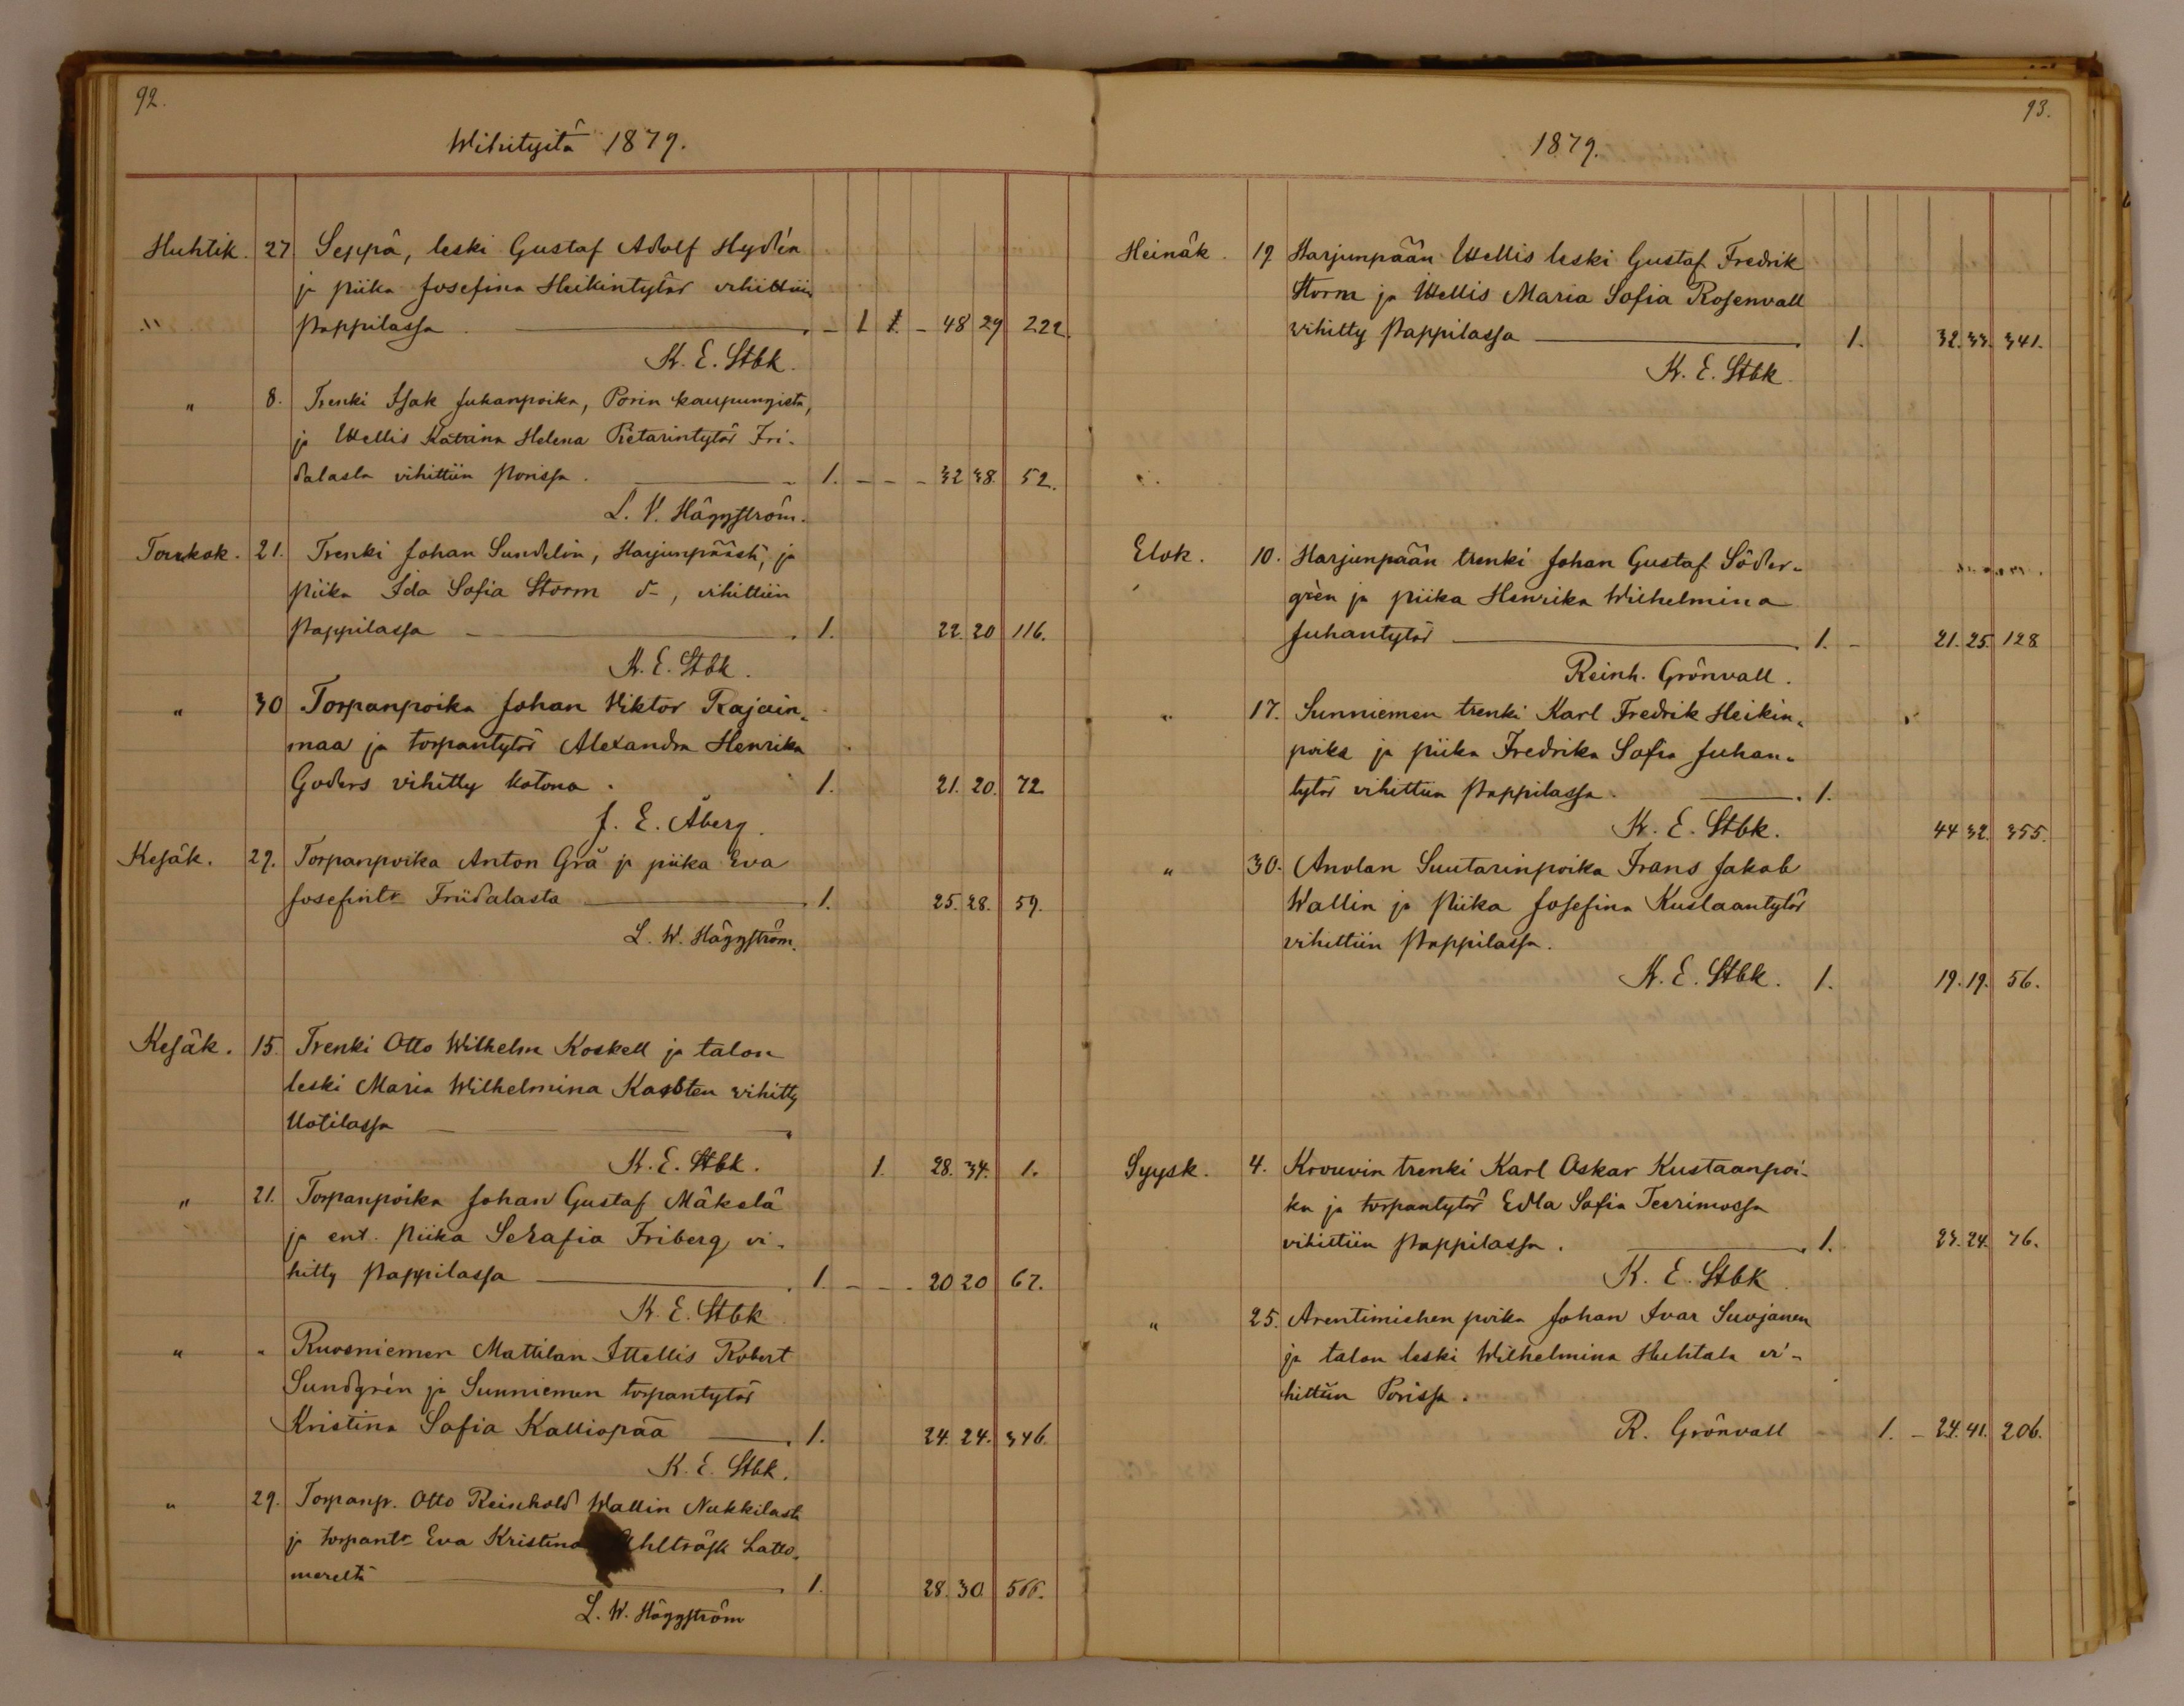 92.
Wihityitä 1879.
Huhtik. 27 Seppä, leski Gustaf Adolf Hydén
ja piika Josefina Heikintytär vihittiin
" Pappilassa. – 1 1. – 48 29 222.
K. E. Stbk.
" 8. Trenki Isak Juhanpoika, Porin kaupungista,
ja Ittellis Katrina Helena Pietarintytär Fri-
dalasta vihittiin Porissa. 1. – – – 32 38. 52.
L. V. Häggström.
Toukok. 21. Trenki Johan Sundelin, Harjunpäästä, ja
piika Ida Sofia Storm d–, vihittiin
Pappilassa 1. 22. 20 116.
K. E. Stbk.
" 30 Torpanpoika Johan Viktor Rajain-
maa ja torpantytär Alexandra Henrika
Goders vihitty kotona. 1. 21. 20. 72.
J. E. Åberg.
Kesäk. 29. Torpanpoika Anton Grå ja piika Eva
Josefintr Friidalasta 1. 25. 28. 59.
L. W. Häggström.
Kesäk. 15. Trenki Otto Wilhelm Koskell ja talon
leski Maria Wilhelmina Kasten vihitty
Uotilassa
K. E. Stbk. 1. 28. 34. 1.
" 21. Torpanpoika Johan Gustaf Mäkelä
ja ent. piika Serafia Friberg vi-
hitty Pappilassa 1. – – 20 20 67.
K. E. Stbk
" " Ruosniemen Mattilan Ittellis Robert
Sundgrén ja Sunniemen torpantytär
Kristina Sofia Kalliopää 1. 24. 24. 346.
K. E. Stbk.
" 29. Torpanp. Otto Reinhold Wallin Nukkilasta
ja torpantr Eva Kristina Latto-
mereltä 1. 28. 30.
L. W. Häggström
93.
1879.
Heinäk. 19 Harjunpään Ittellis leski Gustaf Fredrik
Storm ja Ittellis Maria Sofia Rosenvall
vihitty Pappilassa 1. 32. 33. 341.
K. E. Stbk.
Elok. 10. Harjunpään trenki Johan Gustaf Söder-
grèn ja piika Henrika Wilhelmina
Juhantytär 1. – 21. 25. 128
Reinh. Grönvall.
" 17. Sunniemen trenki Karl Fredrik Heikin-
poika ja piika Fredrika Sofia Juhan-
tytär vihittiin Pappilassa. 1.
K. E. Stbk. 44 32. 355.
" 30. Anolan Suutarinpoika Frans Jakob
Wallin ja Piika Josefina Kustaantytär
vihittiin Pappilassa.
K. E. Stbk. 1. 19. 19. 56.
Syysk. 4. Krouvin trenki Karl Oskar Kustaanpoi-
ka ja torpantytär Edla Sofia Teerimossa
vihittiin Pappilassa. 1. 23. 24. 76.
K. E. Stbk.
" 25. Arentimiehen poika Johan Ivar Suojanen
ja talon leski Wilhelmina Huhtala vi-
hittiin Porissa.
R. Grönvall 1. – 24. 41. 206.